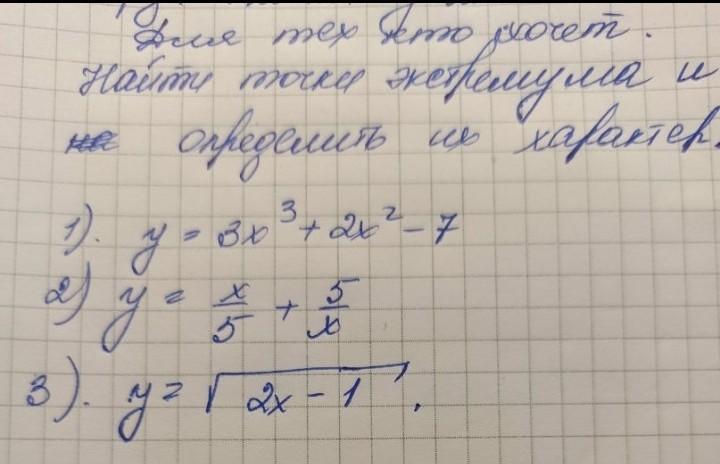 Для тех кто хочет.
Найти точки экстремума и
определить их характер.
1). y = 3x³ + 2x² - 7
2) y = x/5 + 5/x
3). y = √(2x - 1).